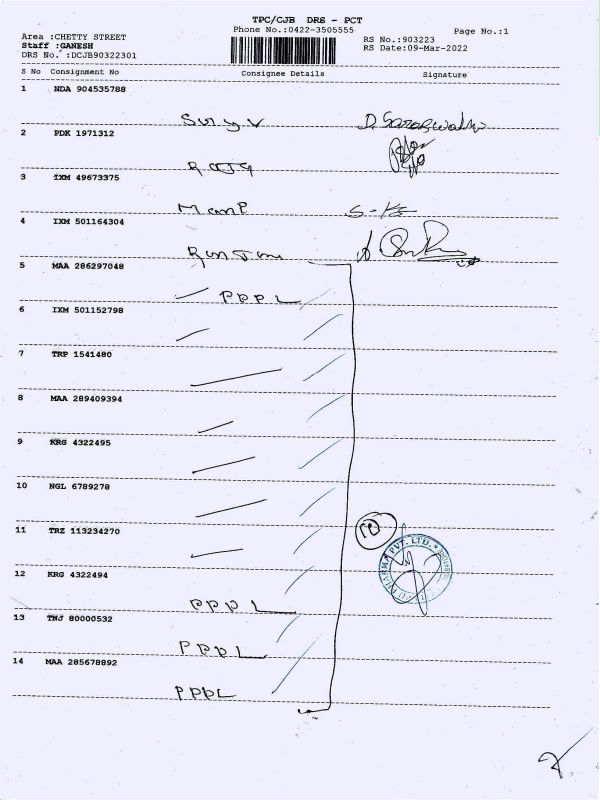 TPC/CJB DRS - PCT
Phone No.:0422-3505555 Page No.:1
Area :CHETTY STREET RS No.:903223
Staff :GANESH RS Date:09-Mar-2022
DRS No. :DCJB90322301
S No Consignment No Consignee Details Signature
1 NDA 904535788
2 PDK 1971312
3 IXM 49673375
4 IXM 501164304
5 MAA 286297048
PPPL
6 IXM 501152798
7 TRP 1541480
8 MAA 289409394
9 KRG 4322495
10 NGL 6789278
11 TRZ 113234270
10
PHARMA PVT. LTD.
12 KRG 4322494
PPPL
13 TNJ 80000532
PPPL
14 MAA 285678892
PPPL